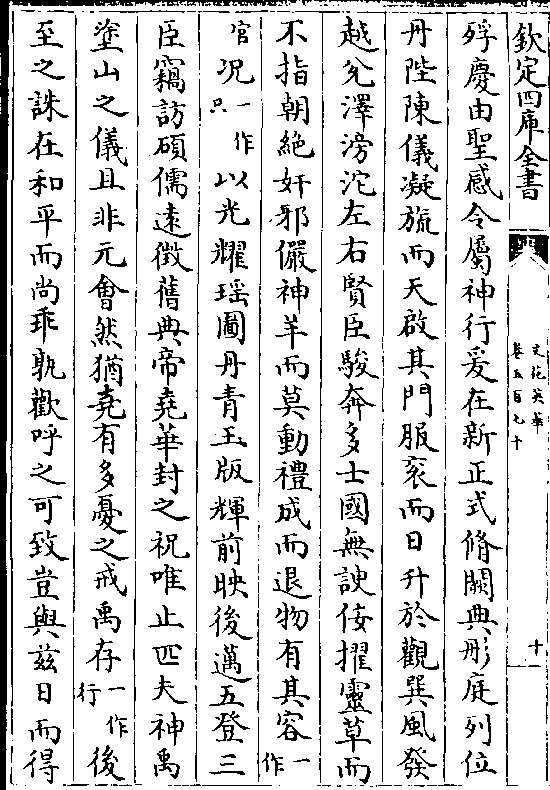 欽定四庫全書
文苑英華
卷五百七十
十一
殍慶由聖感令屬神行爰在新正式脩闕典彤庭列位
丹陛陳儀凝旒而天啟其門服衮而日升於觀巽風發
越兊澤滂沱左右賢臣駿奔多士國無諛佞擢靈草而
不指朝絶奸邪儼神羊而莫動禮成而退物有其容一作
官况一作只以光耀瑶圖丹青玉版輝前映後邁五登三
臣竊訪碩儒遠徴舊典帝堯華封之祝唯止匹夫神禹
塗山之儀且非元會然猶堯有多憂之戒禹存一作行後
至之誅在和平而尚乖孰歡呼之可致豈與兹日而得